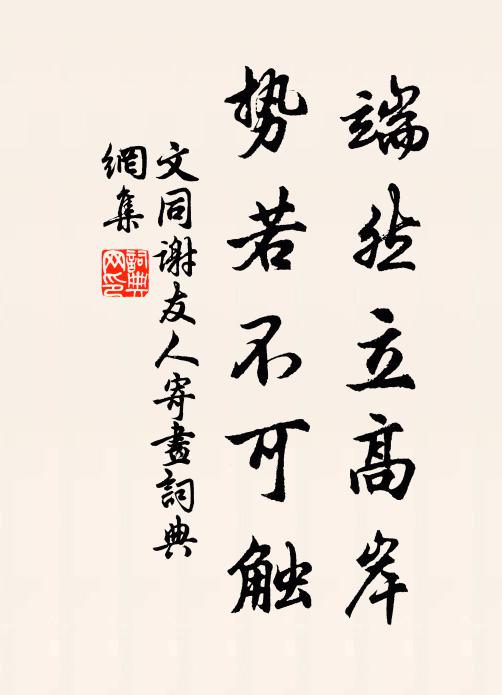 端然立高岸
势若不可触
文同谢友人寄畫詞典
網集
詞典
网印